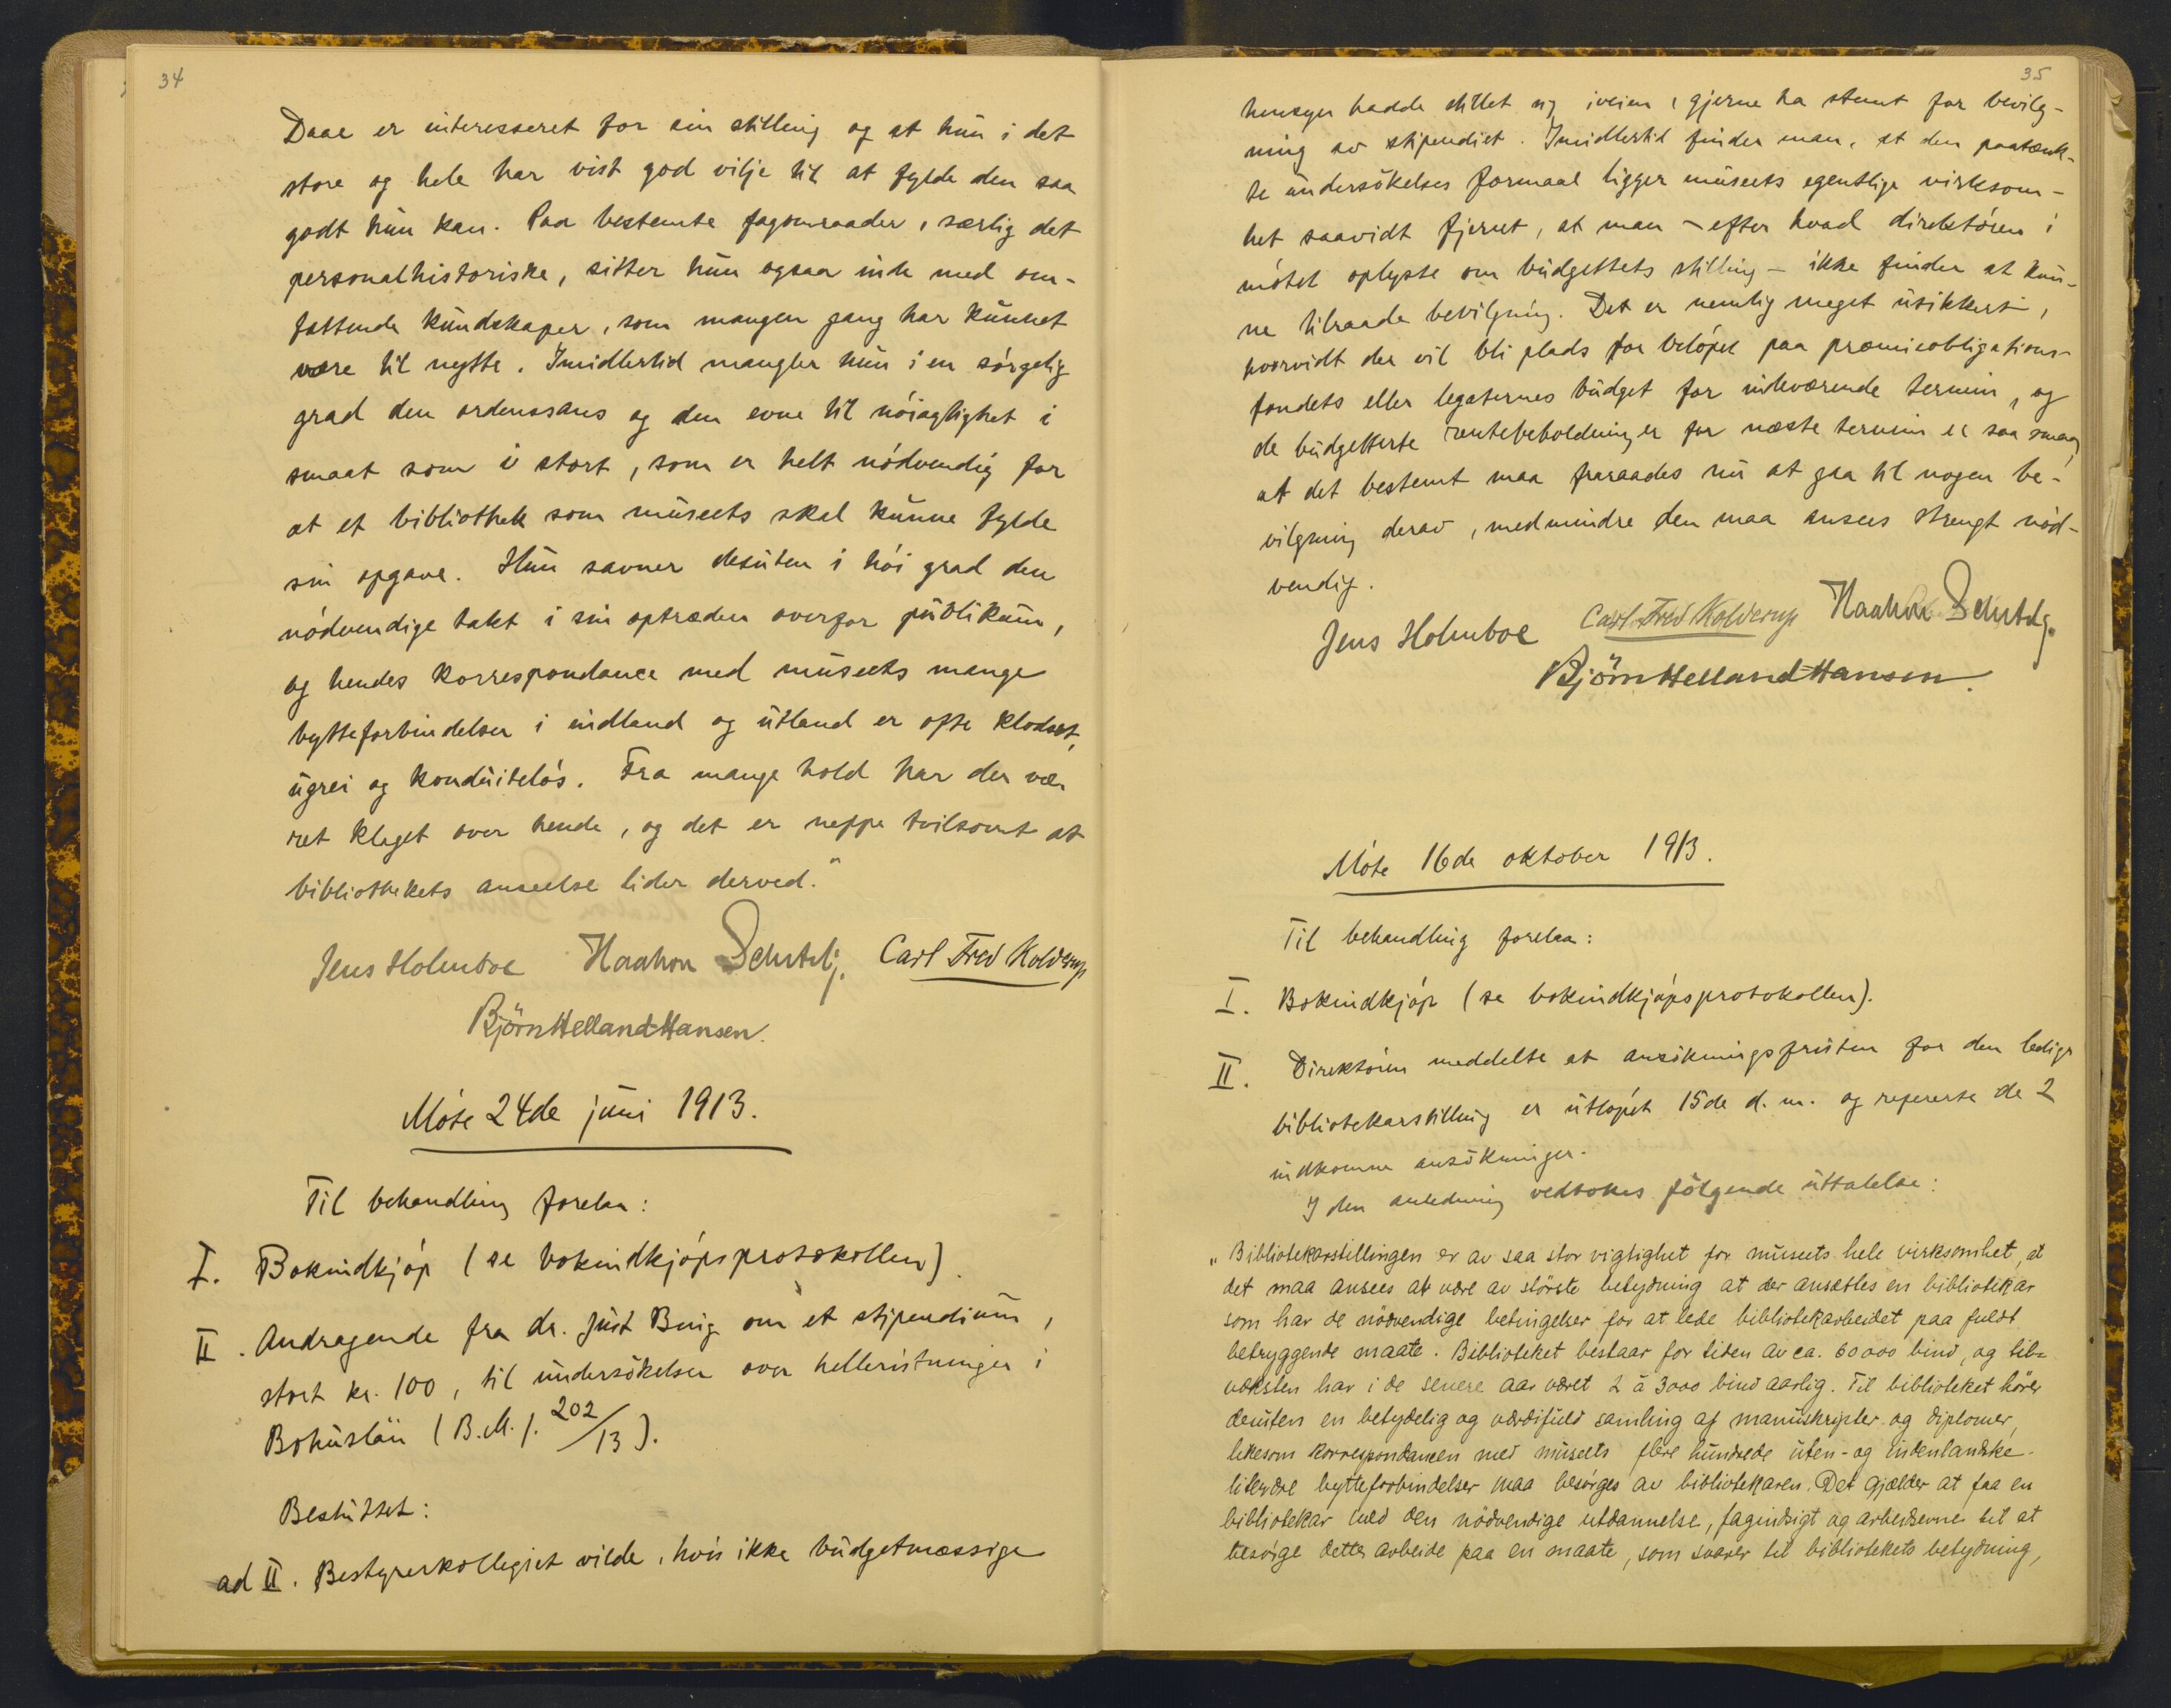 34
Daae er interesseret for sin stilling og at hun i det
store og hele har vist god vilje til at fylde den saa
godt hun kan. Paa bestemte fagomraader, særlig det
personalhistoriske, sitter hun ogsaa inde med om-
fattende kundskaper, som mangen gang har kunnet
være til nytte. Imidlertid mangler hun i en sørgelig
grad den ordenssans og den evne til nøiagtighet i
smaat som i stort, som er helt nødvendig for
at et bibliothek som museets skal kunne fylde
sin opgave. Hun savner desuten i høi grad den
nødvendige takt i sin optræden overfor publikum,
og hendes korrespondance med museets mange
bytteforbindelser i indland og utland er ofte klodset,
ugrei og konduiteløs. Fra mange hold har der væ-
ret klaget over hende, og det er neppe tvilsomt at
bibliothekets anseelse lider derved."
Jens Holmboe Haakon Schetelig. Carl Fred Kolderup
Bjørn Helland-Hansen.
Møte 24de juni 1913.
Til behandling forelaa:
I. Bokindkjøp (se bokindkjøpsprotokollen).
II. Andragende fra dr. Just Bing om et stipendium,
stort kr. 100, til undersøkelser over helleristninger i
Bohuslän (B.M. j. 202/13).
Besluttet:
ad II. Bestyrerkollegiet vilde, hvis ikke budgetmæssige
35
hensyn hadde stillet sig iveien, gjerne ha stemt for bevilg-
ning av stipendiet. Imidlertid finder man, at den paatænk-
te undersökelses formaal ligger museets egentlige virksom-
het saavidt fjernt, at man – efter hvad direktøren i
møtet oplyste om budgettets stilling – ikke finder at kun-
ne tilraade bevilgning. Det er nemlig meget usikkert,
hvorvidt der vil bli plads for beløpet paa præmieobligations-
fondets eller legaternes budget for indeværende termin, og
de budgetterte rentebeholdninger for næste termin er saa smaa,
at det bestemt maa fraraades nu at gaa til nogen be-
vilgning derav, medmindre den maa ansees strengt nød-
vendig.
Jens Holmboe Carl Fred Kolderup Haakon Schetelig.
Bjørn Helland-Hansen.
Møte 16de oktober 1913.
Til behandling forelaa:
I. Bokindkjøp (se bokindkjøpsprotokollen).
II. Direktøren meddelte at ansökningsfristen for den ledige
bibliotekarstilling er utløpet 15de d. m. og refererte de 2
indkomne ansökninger.
I den anledning vedtokes følgende uttalelse:
"Bibliotekarstillingen er av saa stor vigtighet for museets hele virksomhet, at
det maa ansees at være av største betydning at der ansættes en bibliotekar
som har de nödvendige betingelser for at lede bibliotekarbeidet paa fuldt
betryggende maate. Biblioteket bestaar for tiden av ca. 60000 bind, og til-
væksten har i de senere aar været 2 à 3000 bind aarlig. Til biblioteket hører
desuten en betydelig og værdifuld samling af manuskripter og diplomer,
likesom korrespondancen med museets flere hundrede uten- og indenlandske
literære bytteforbindelser maa besørges av bibliotekaren. Det gjælder at faa en
bibliotekar med den nödvendige utdannelse, fagindsigt og arbeidsevne til at
besørge dette arbeide paa en maate, som svarer til bibliotekets betydning,